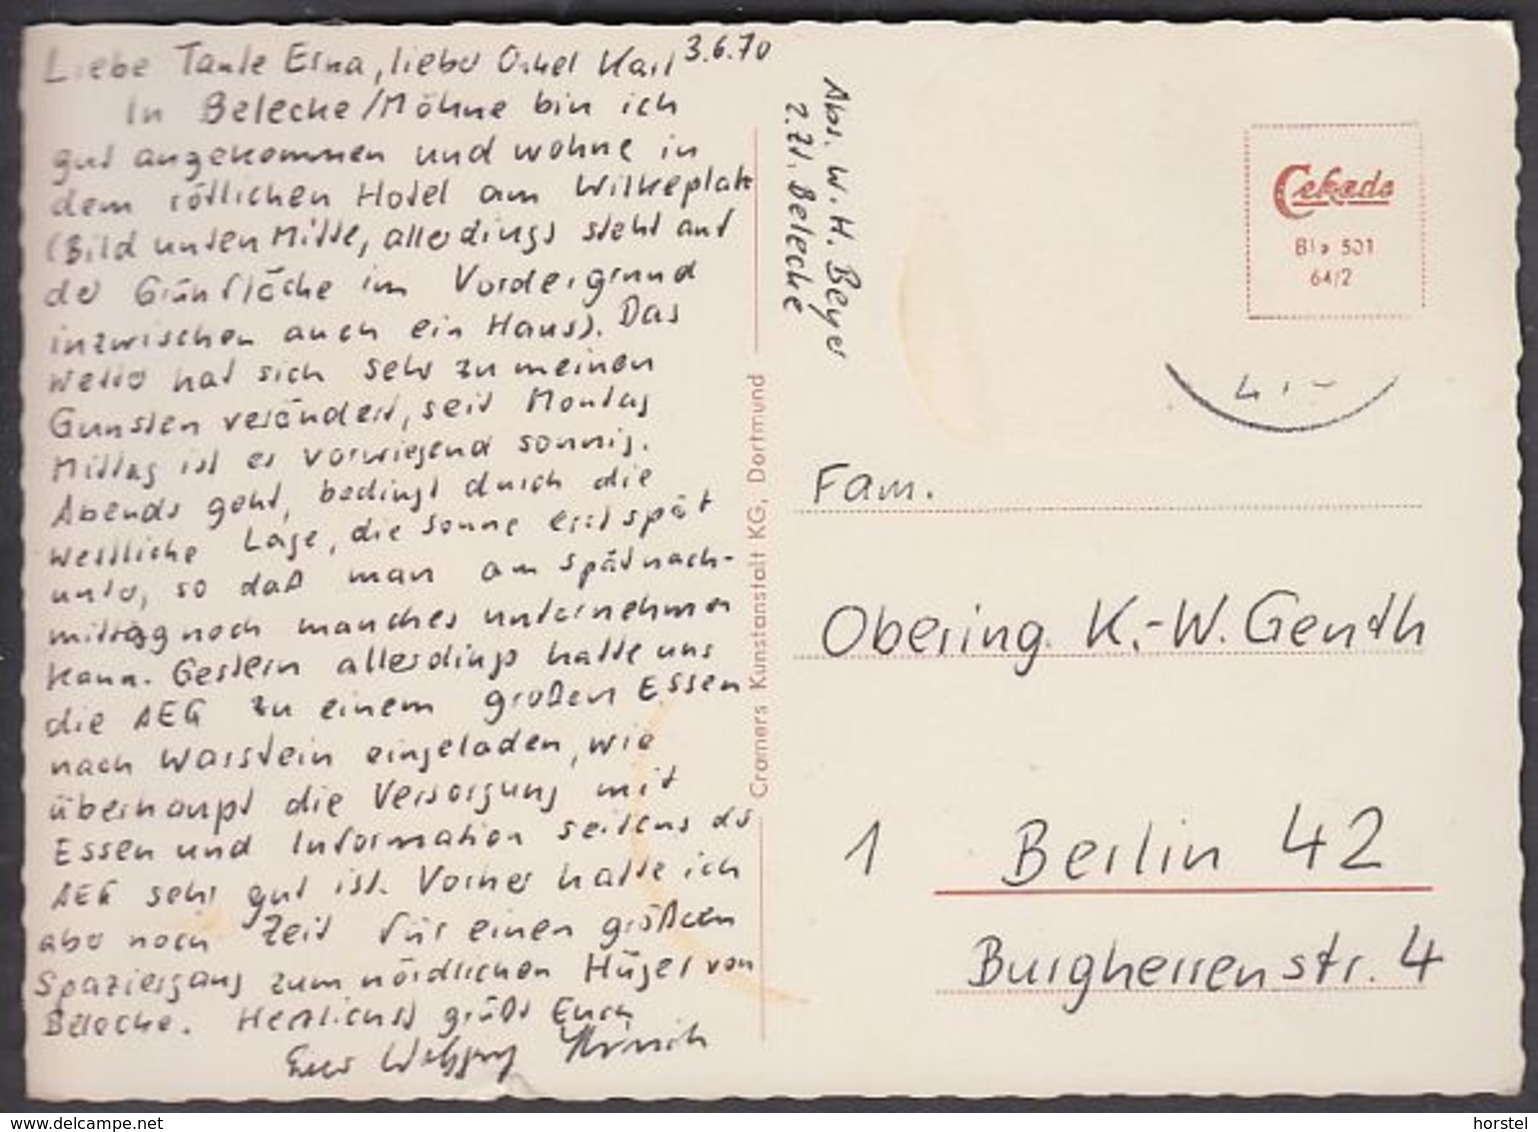 Liebe Tante Erna, lieber Onkel Karl 3.6.70
In Belecke/Möhne bin ich
gut angekommen und wohne in
dem rötlichen Hotel am Wilkeplatz
(Bild unten Mitte, allerdings steht auf
der Grünfläche im Vordergrund
inzwischen auch ein Haus). Das
Wetter hat sich sehr zu meinen
Gunsten verändert, seit Montag
Mittag ist es vorwiegend sonnig.
Abends geht, bedingt durch die
westliche Lage, die Sonne erst spät
unter, so daß man am Spätnach-
mittag noch manches unternehmen
kann. Gestern allerdings hatte uns
die AEG zu einem großen Essen
nach Warstein eingeladen, wie
überhaupt die Versorgung mit
Essen und Information seitens der
AEG sehr gut ist. Vorher hatte ich
aber noch Zeit für einen größeren
Spaziergang zum nördlichen Hügel von
Belecke. Herzlichst grüßt Euch
Euer Wolfgang
Abs. W. H. Beyer
z.Zt. Belecke
Cramers Kunstanstalt KG, Dortmund
Cekade
Bla 501
64/2
Fam.
Obering. K.-W. Genth
1 Berlin 42
Burgherrenstr. 4
www.delcampe.net
horstel